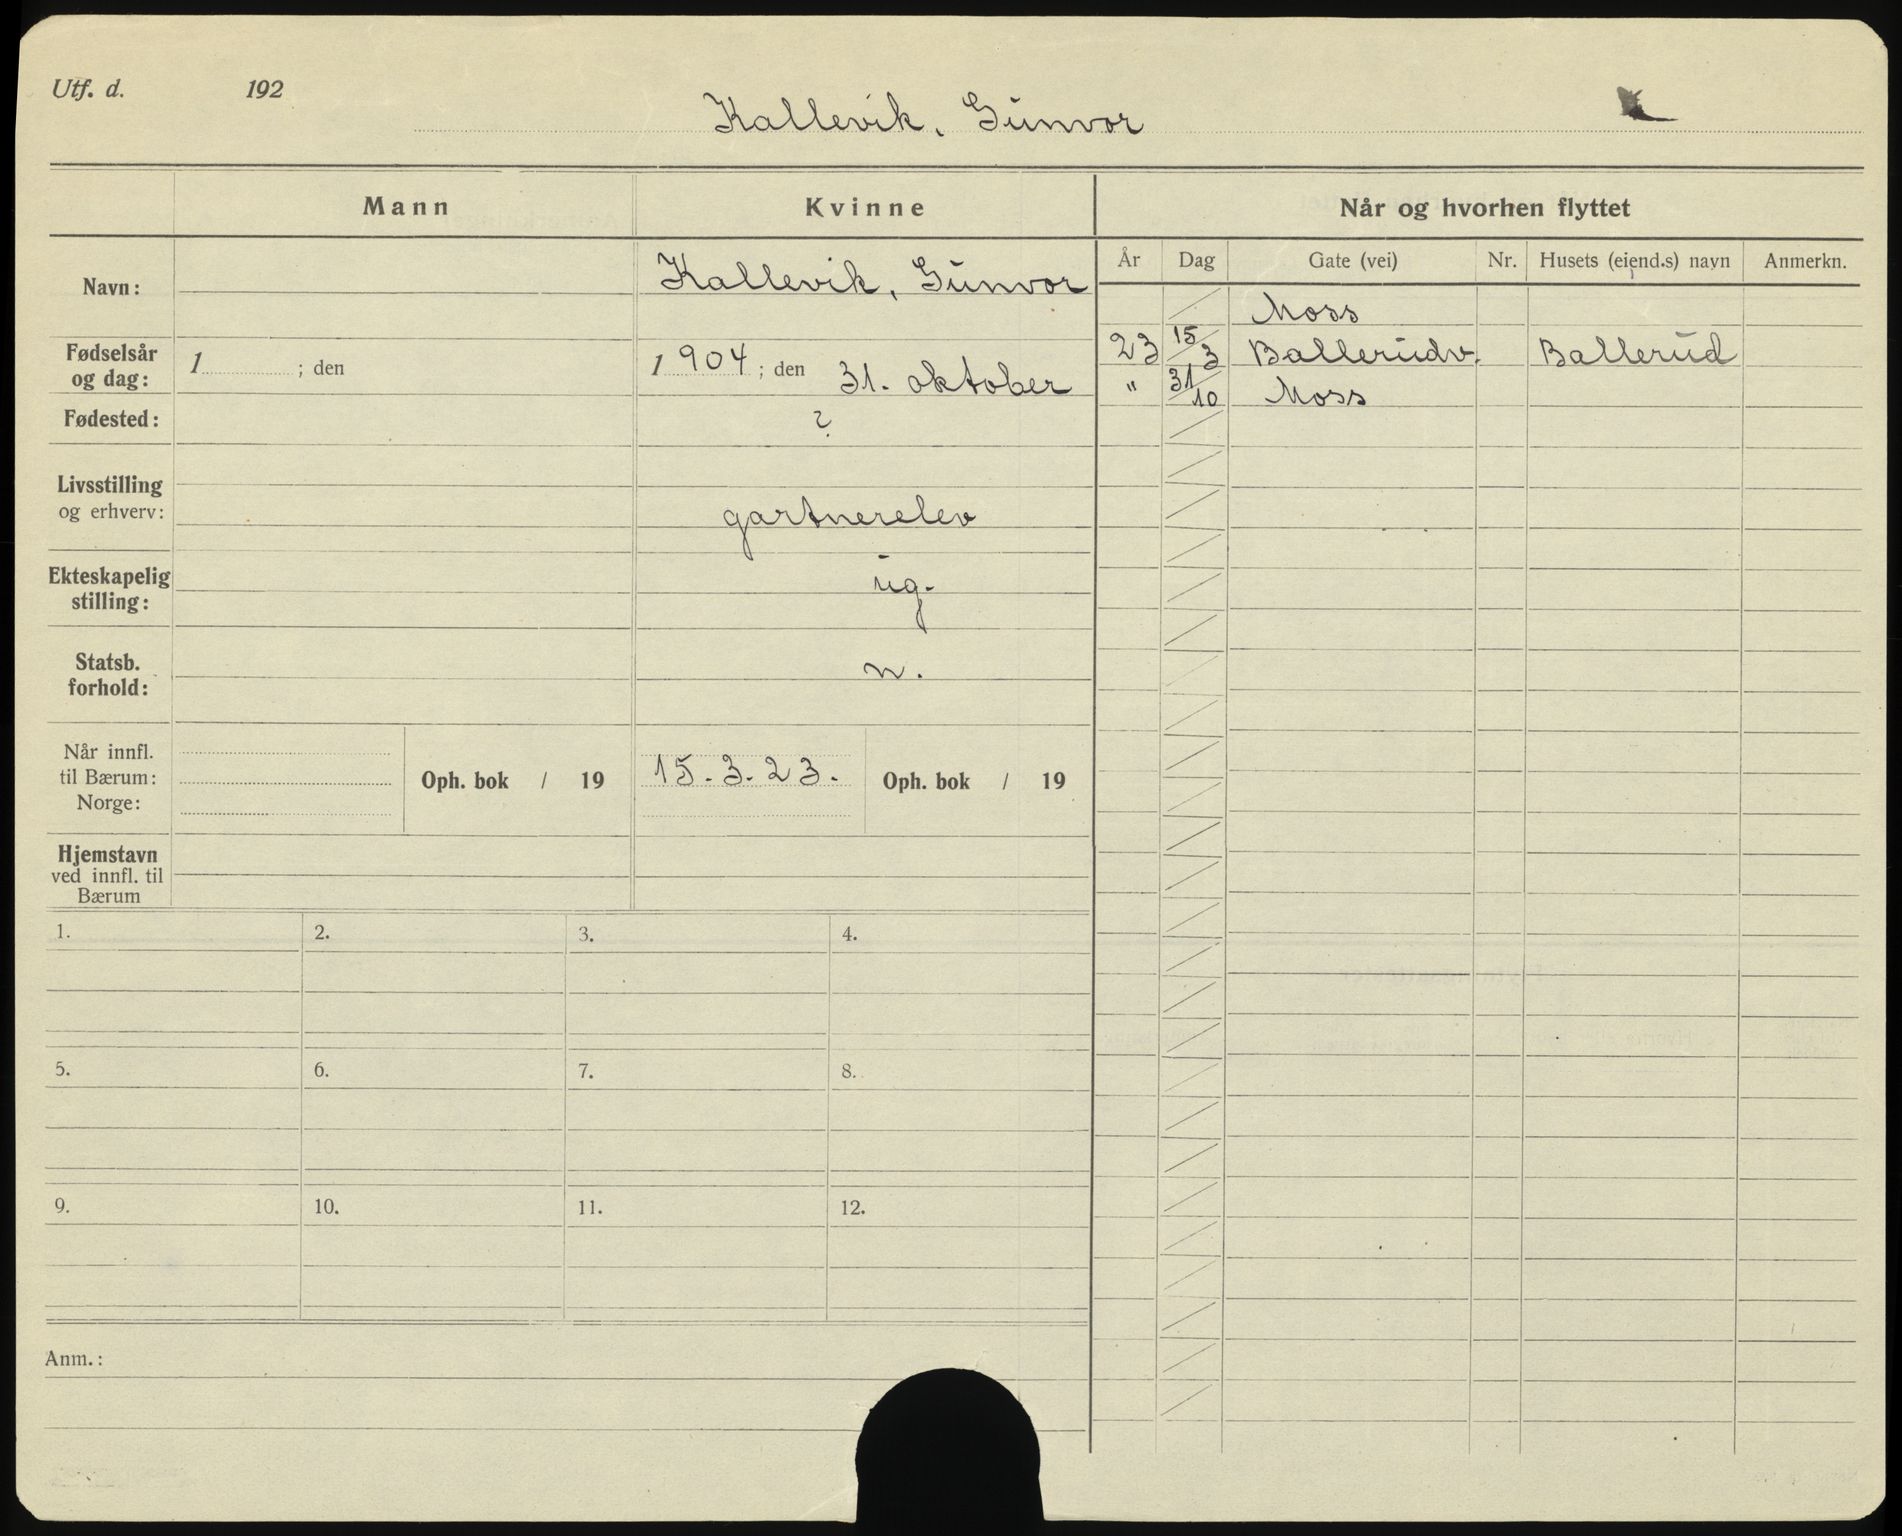 Utf. d. 192
Kallevik, Gunvor
Mann Kvinne Når og hvorhen flyttet
År Dag Gate (vei) Nr. Husets (eiend.s) navn Anmerkn.
Navn: Kallevik, Gunvor
Moss
Fødselsår
og dag: 1 ; den 1904 ; den 31. oktober
23 15/3 Ballerudv. Ballerud
" 31/10 Moss
Fødested: ?
Livsstilling
og erhverv: gartnerelev
Ekteskapelig
stilling: ug.
Statsb.
forhold: n.
Når innfl.
til Bærum: Oph. bok / 19 15.3.23. Oph. bok / 19
Norge:
Hjemstavn
ved innfl. til
Bærum
1. 2. 3. 4.
5. 6. 7. 8.
9. 10. 11. 12.
Anm.: